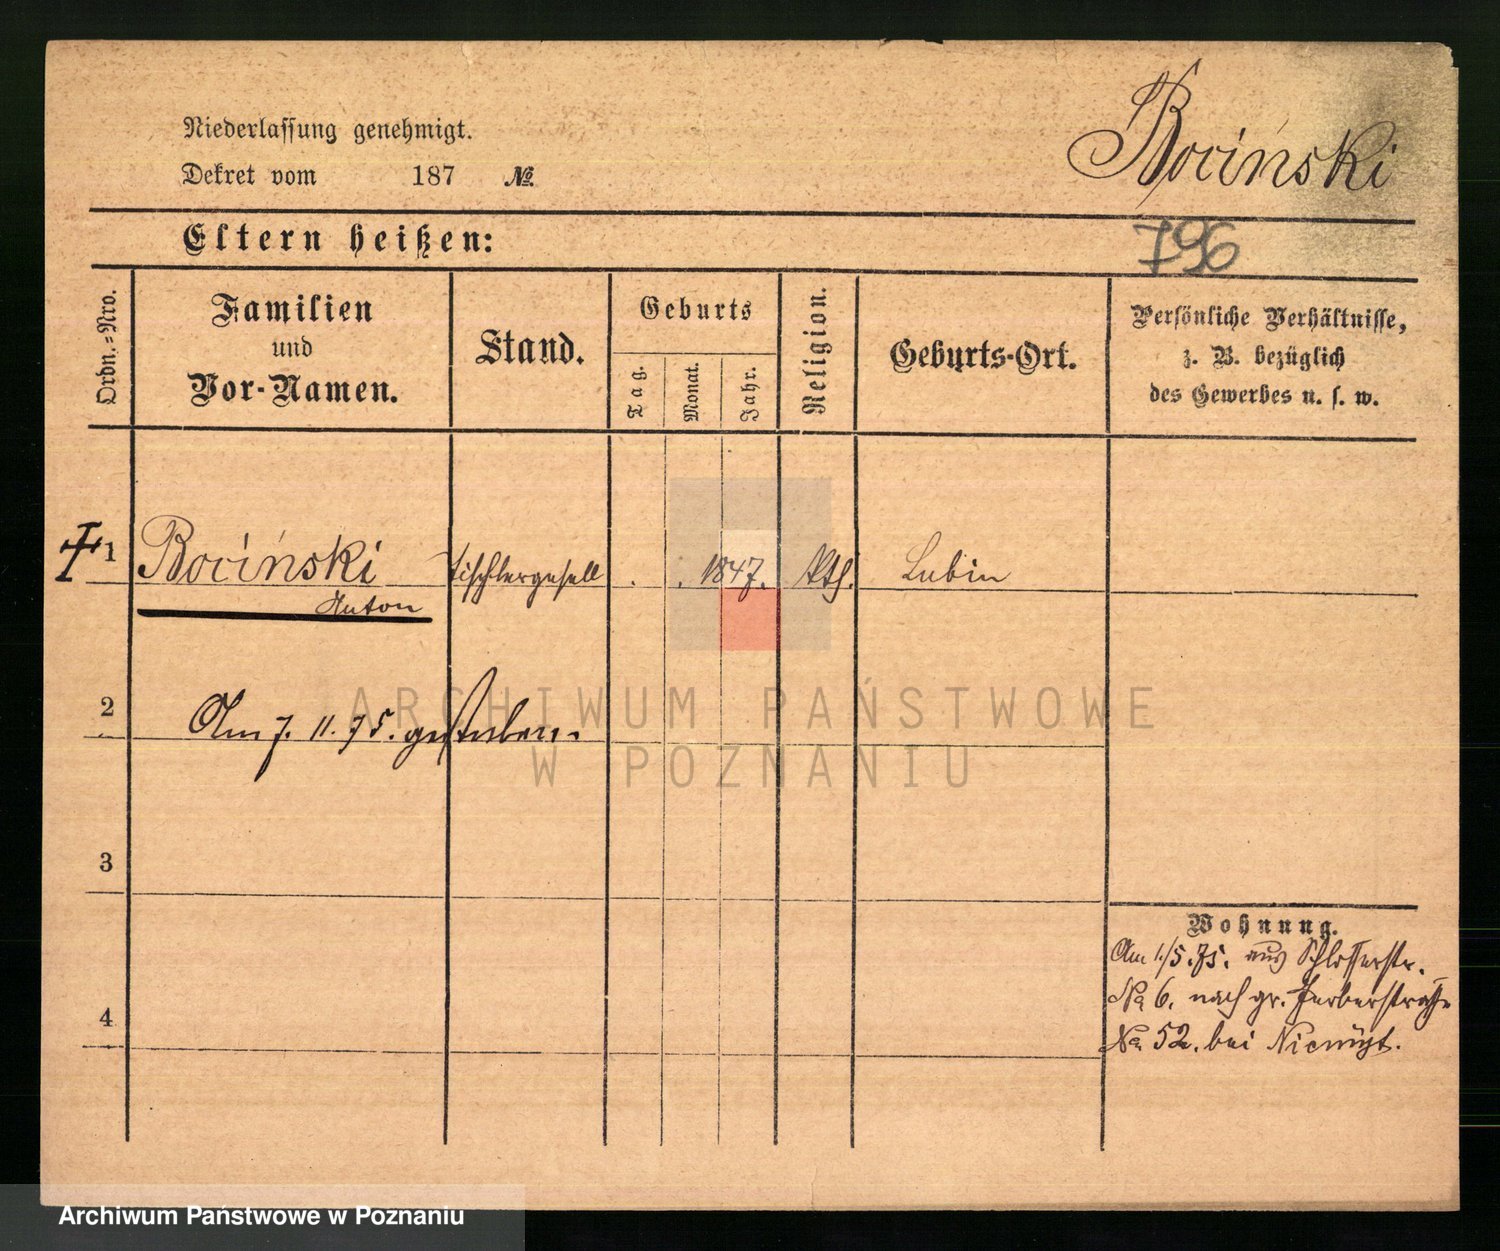 Niederlassung genehmigt.
Bociński
Dekret vom 187 №
Eltern heißen:
796
Ordn.-Nro.
Familien
und
Vor-Namen.
Stand.
Geburts
Tag.
Monat.
Jahr.
Religion.
Geburts-Ort.
Persönliche Verhältnisse,
z. B. bezüglich
des Gewerbes u. s. w.
1
Bociński tischlergesell . . 1847. kth. Lubin
Anton
2
Am 7. 11. 75. gestorben.
ARCHIWUM PAŃSTWOWE
W POZNANIU
3
Wohnung.
Am 1./5.75. aus Schlosserstr.
№ 6. nach gr. Gerberstraße
4
№ 52. bei
Archiwum Państwowe w Poznaniu